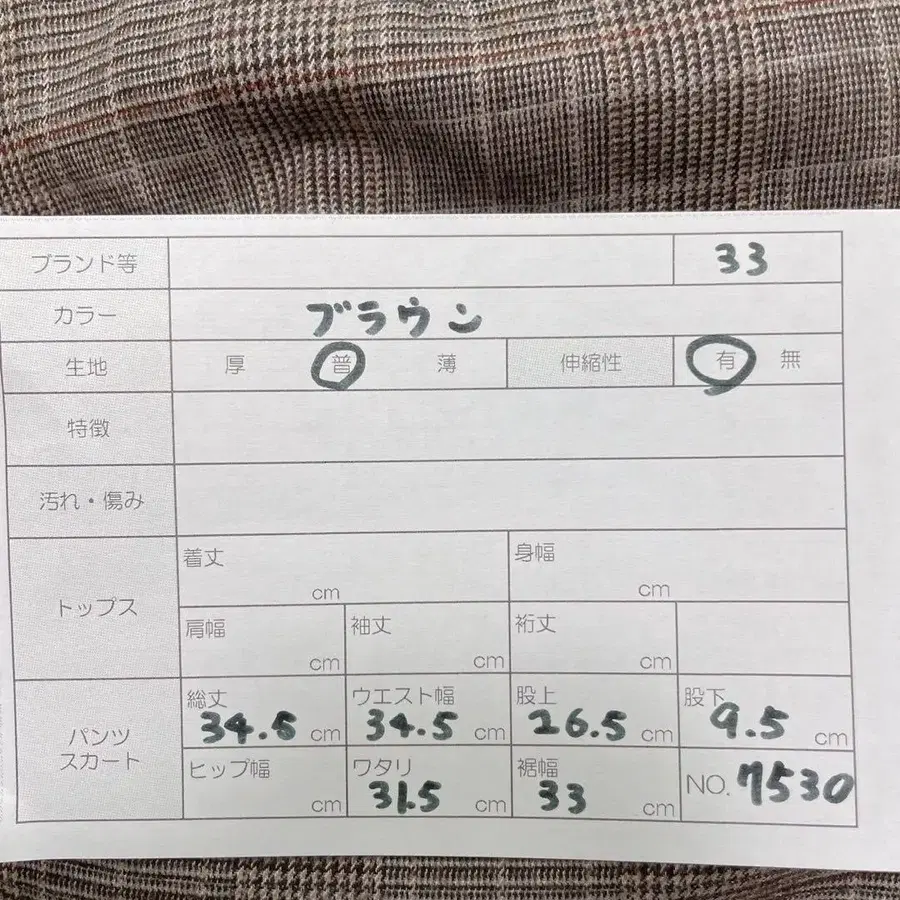 ブランド等 33
カラー ブラウン
生地 厚 普 薄 伸縮性 有 無
特徴
汚れ・傷み
トップス
着丈 cm 身幅 cm
肩幅 cm 袖丈 cm 裄丈 cm
パンツ
スカート
総丈 34.5 cm ウエスト幅 34.5 cm 股上 26.5 cm 股下 9.5 cm
ヒップ幅 cm ワタリ 31.5 cm 裾幅 33 cm NO. 7530